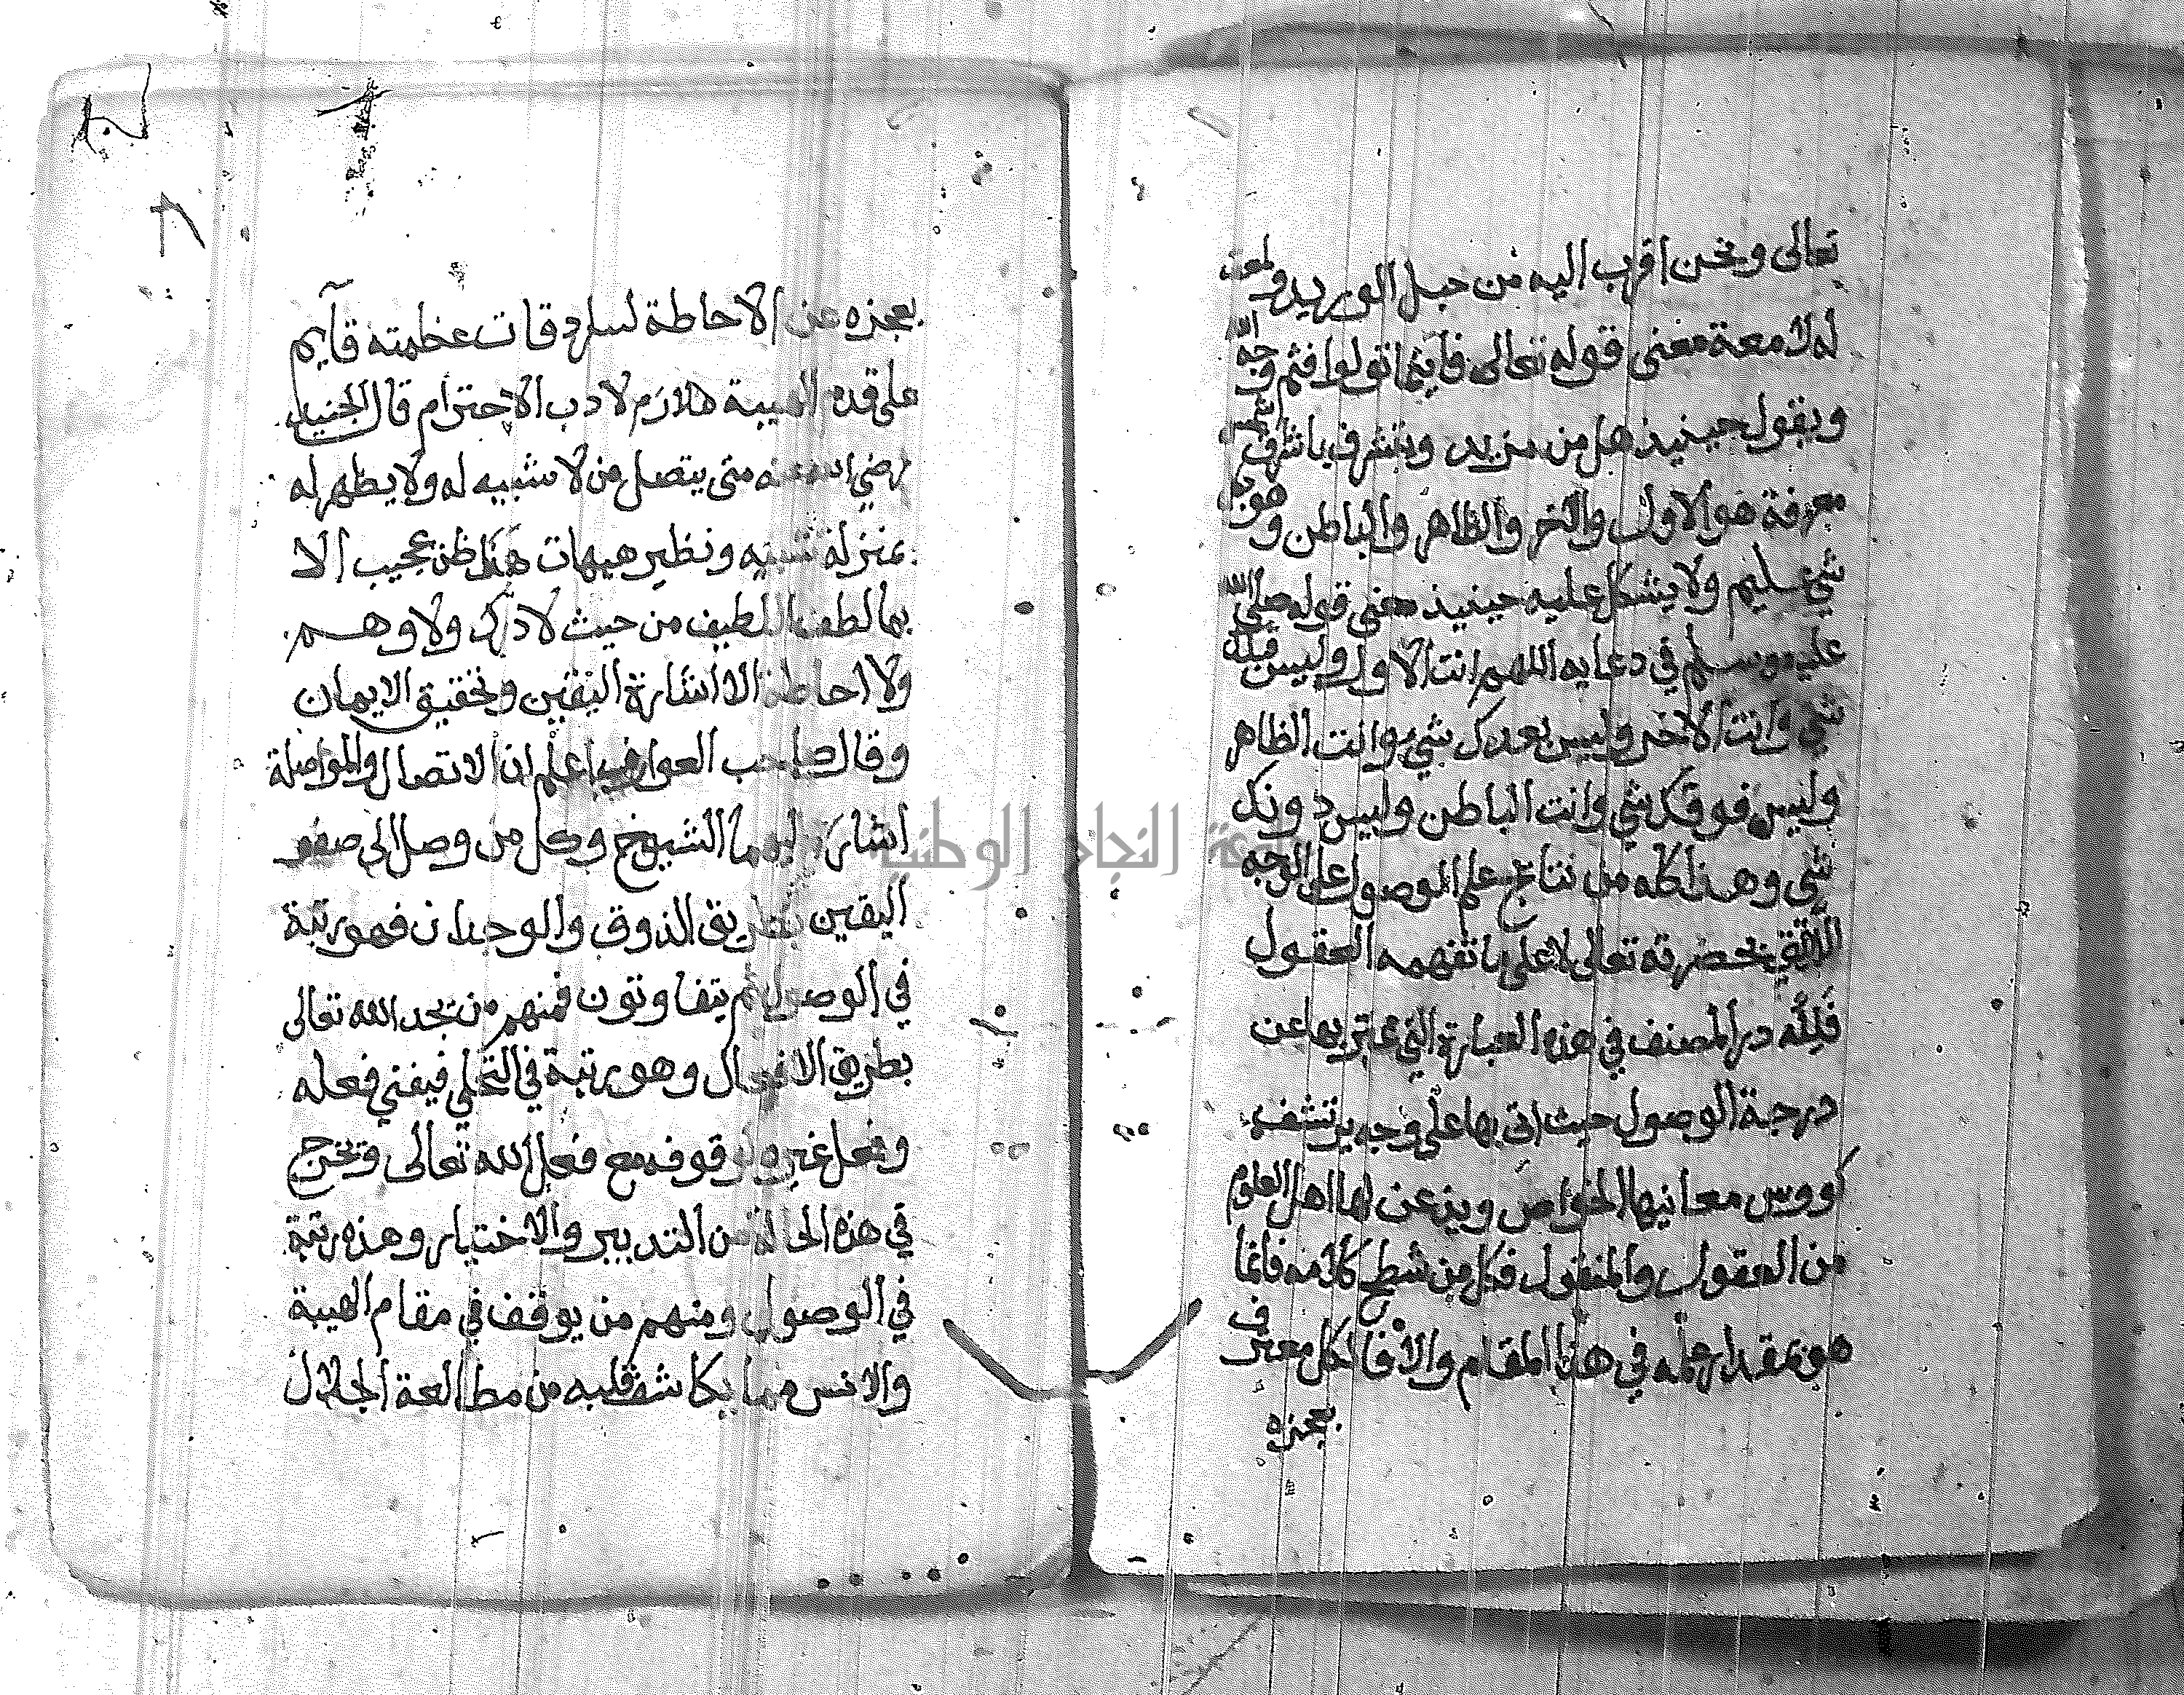 تعالى ونحن اقرب اليه من حبل الوريد ولمعت
له لامعة معنى قوله تعالى فاينما تولوا فثم وجه الله
ويقول حينيذ هل من مزيد ويتشرف باشراق شمس
معرفة هو الاول والاخر والظاهر والباطن وهو بكل
شي عليم ولا يشكل عليه حينيذ معنى قوله صلى الله
عليه وسلم في دعايه اللهم انت الاول وليس قبلك
شي وانت الاخر وليس بعدك شي وانت الظاهر
وليس فوقك شي وانت الباطن وليس دونك
شي وهذا كله من نتايج علم الوصول على الوجه
اللائق بحضرته تعالى لا على ما تفهمه العقول
فلله در المصنف في هذه العبارة التي عبر بها عن
درجة الوصول حيث اتى بها على وجه يرتشف
كووس معانيها الخواص ويذعن لها اهل العلوم
من العقول والمنقول فكل من شطح كلامه فانما
هو بمقدار علمه في هذا المقام والا فالكل معترف
بعجزه
بعجزه عن الاحاطة لسرادقات عظمته قآيم
على قدم الهيبة ملازم لادب الاحترام قال الجنيد
رضي الله عنه متى يتصل من لا شبيه له ولا يظهر له
بمنزلة شبيه ونظير هيهات هذا ظن عجيب الا
بما لطف اللطيف من حيث لا درك ولا وهم
ولا احاطة الا اشارة اليقين وتحقيق الايمان
وقال صاحب العوارف اعلم ان الاتصال والمواصلة
اشار اليهما الشيوخ وكل من وصل الى صفو
اليقين بطريق الذوق والوجدان فهو رتبة
في الوصول ثم يتفاوتون فمنهم من يجد الله تعالى
بطريق الافعال وهو رتبة في التجلي فيفنى فعله
وفعل غيره لوقوفه مع فعل الله تعالى فيخرج
في هذه الحالة من التدبير والاختيار وهذه رتبة
في الوصول ومنهم من يوقف في مقام الهيبة
والانس مما يكاشف قلبه من مطالعة الجلال
جامعة النجاح الوطنية